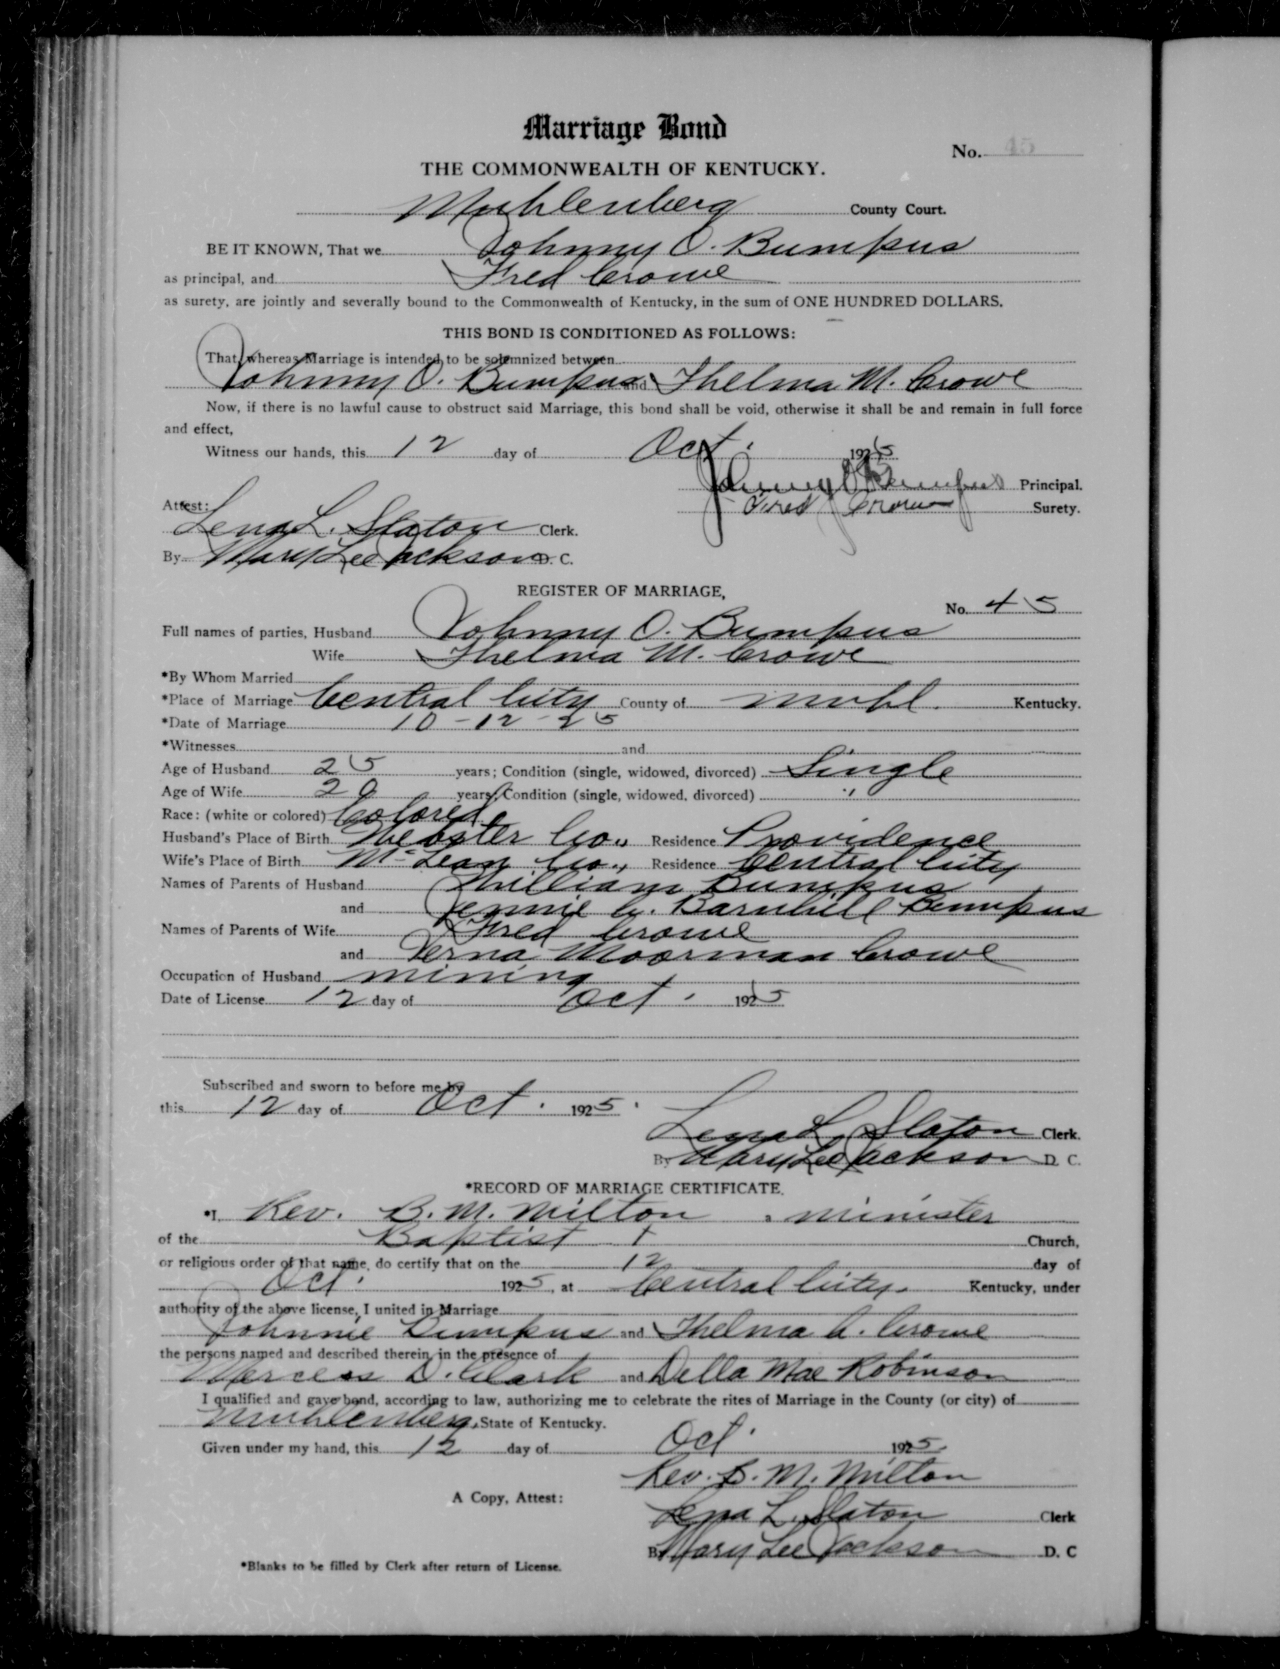 Marriage Bond
No. 45
THE COMMONWEALTH OF KENTUCKY.
Muhlenberg County Court.
BE IT KNOWN, That we Johnny O. Bumpus
as principal, and Fred Crowe
as surety, are jointly and severally bound to the Commonwealth of Kentucky, in the sum of ONE HUNDRED DOLLARS.
THIS BOND IS CONDITIONED AS FOLLOWS:
That, whereas Marriage is intended to be solemnized between
Johnny O. Bumpus and Thelma M. Crowe
Now, if there is no lawful cause to obstruct said Marriage, this bond shall be void, otherwise it shall be and remain in full force
and effect,
Witness our hands, this 12 day of Oct. 1925
Johnny O Bumpus Principal.
Attest: Fred Crowe Surety.
Lena L. Slaton Clerk.
By Mary Lee Jackson D. C.
REGISTER OF MARRIAGE,
No. 45
Full names of parties, Husband Johnny O. Bumpus
Wife Thelma M. Crowe
*By Whom Married
*Place of Marriage Central City County of Muhl. Kentucky.
*Date of Marriage 10-12-25
*Witnesses and
Age of Husband 25 years; Condition (single, widowed, divorced) Single
Age of Wife 20 years; Condition (single, widowed, divorced) "
Race: (white or colored) Colored
Husband's Place of Birth Webster Co., Residence Providence
Wife's Place of Birth McLean Co., Residence Central City
Names of Parents of Husband William Bumpus
and Jennie C. Barnhill Bumpus
Names of Parents of Wife Fred Crowe
and Verna Moorman Crowe
Occupation of Husband mining
Date of License 12 day of Oct. 1925
Subscribed and sworn to before me by
this 12 day of Oct. 1925.
Lena L. Slaton Clerk.
By Mary Lee Jackson D. C.
*RECORD OF MARRIAGE CERTIFICATE.
*I, Rev. B. M. Milton, minister
of the Baptist Church,
or religious order of that name, do certify that on the 12 day of
Oct. 1925, at Central City. Kentucky, under
authority of the above license, I united in Marriage
Johnnie Bumpus and Thelma A. Crowe
the persons named and described therein, in the presence of
Mercess D. Clark and Della Mae Robinson
I qualified and gave bond, according to law, authorizing me to celebrate the rites of Marriage in the County (or city) of
Muhlenberg, State of Kentucky.
Given under my hand, this 12 day of Oct. 1925.
Rev. B. M. Milton
A Copy, Attest:
Lena L. Slaton Clerk
By Mary Lee Jackson D. C
*Blanks to be filled by Clerk after return of License.